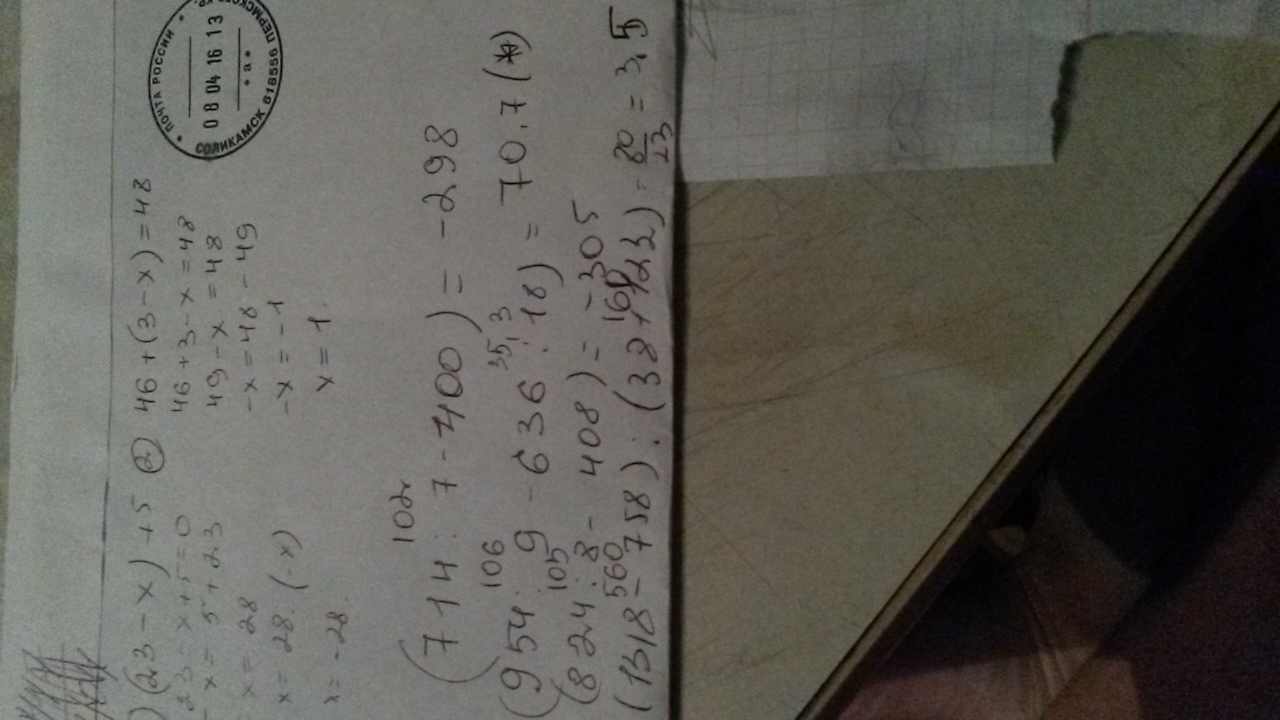 ) (23-x)+5
23-x+5=0
-x=5+23
x=28
x=28.(-x)
x=-28.
② 46+(3-x)=48
46+3-x=48
49-x=48
-x=48-49
-x=-1
x=1.
ПОЧТА РОССИИ
08 04 16 13
а
СОЛИКАМСК 618556 ПЕРМСКОГО КР.
102
(714:7-400)=-298
106 35,3
(954:9-636:18)=70.7(*)
105
(824:8-408)=-305
560 160
(1318-758):(38+122)=80/23=3,5